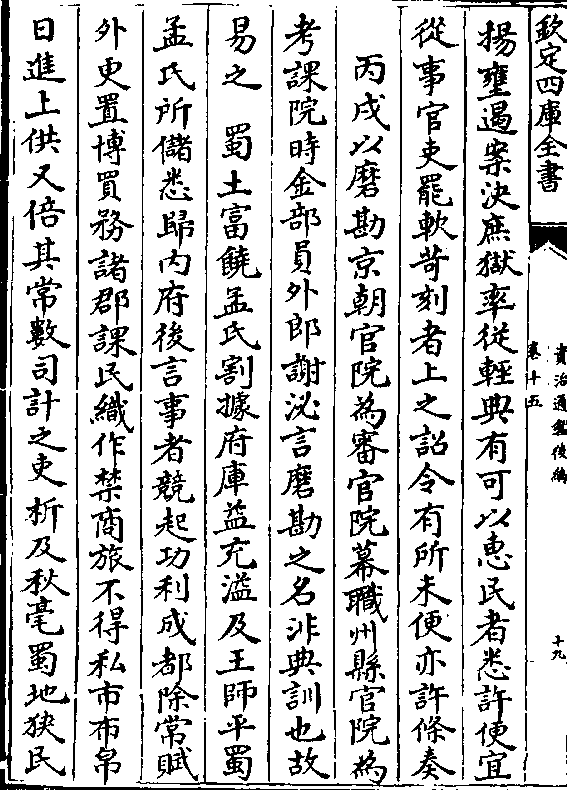 欽定四庫全書
資治通鑑後編
卷十五
十九
揚壅遏案決庶獄率從輕典有可以惠民者悉許便宜
從事官吏罷軟苛刻者上之詔令有所未便亦許條奏
丙戌以磨勘京朝官院為審官院幕職州縣官院為
考課院時金部員外郎謝泌言磨勘之名非典訓也故
易之　蜀土富饒孟氏割據府庫益充溢及王師平蜀
孟氏所儲悉歸内府後言事者競起功利成都除常賦
外更置博買務諸郡課民織作禁商旅不得私市布帛
日進上供又倍其常數司計之吏析及秋毫蜀地狹民